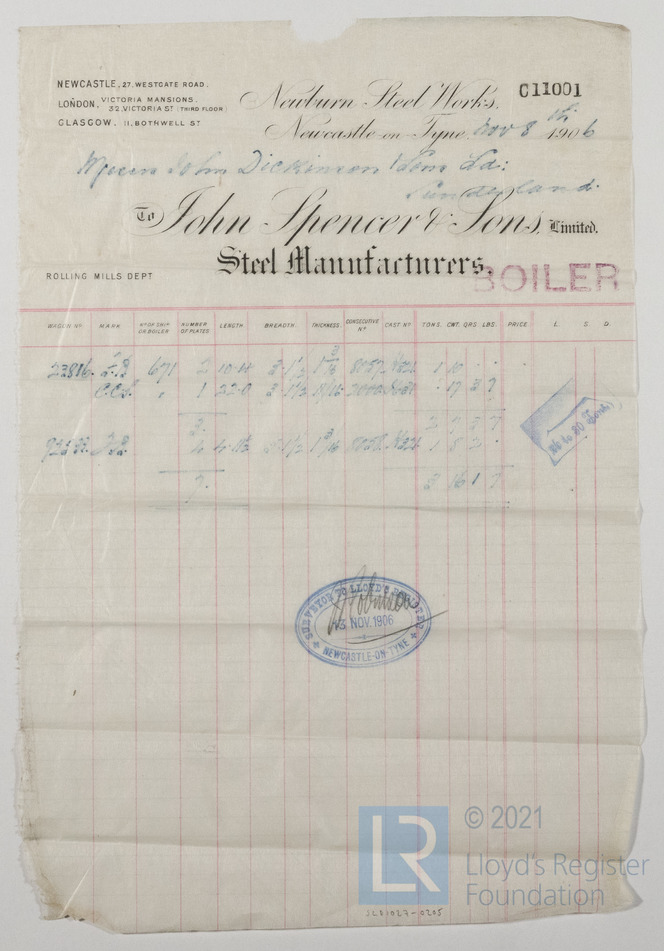 NEWCASTLE, 27. WESTGATE ROAD.
LONDON, VICTORIA MANSIONS,
32. VICTORIA ST (THIRD FLOOR)
GLASGOW. 11, BOTHWELL ST
C11001
Newburn Steel Works,
Newcastle-on-Tyne, Nov 8th 1906
Messrs John Dickinson & Sons Ld:
Sunderland.
To John Spencer & Sons, Limited.
Steel Manufacturers,
BOILER
ROLLING MILLS DEPT
WAGON No. MARK. No OF SHIP OR BOILER NUMBER OF PLATES LENGTH. BREADTH. THICKNESS. CONSECUTIVE No. CAST No. TONS. CWT. QRS. LBS. PRICE. L. S. D.
23816. 671 2 3.1½ 1 3/16 8057 1 10
1 22.0 3.1½ 17 3 7
3.
4 3.1½ 1 3/16 8058 1 8 2
7. 3 16 1 7
26 to 30 Tons
SURVEYOR TO LLOYD'S REGISTER
13 NOV. 1906
NEWCASTLE-ON-TYNE
LR
© 2021
Lloyd's Register
Foundation
SLD1027-0205